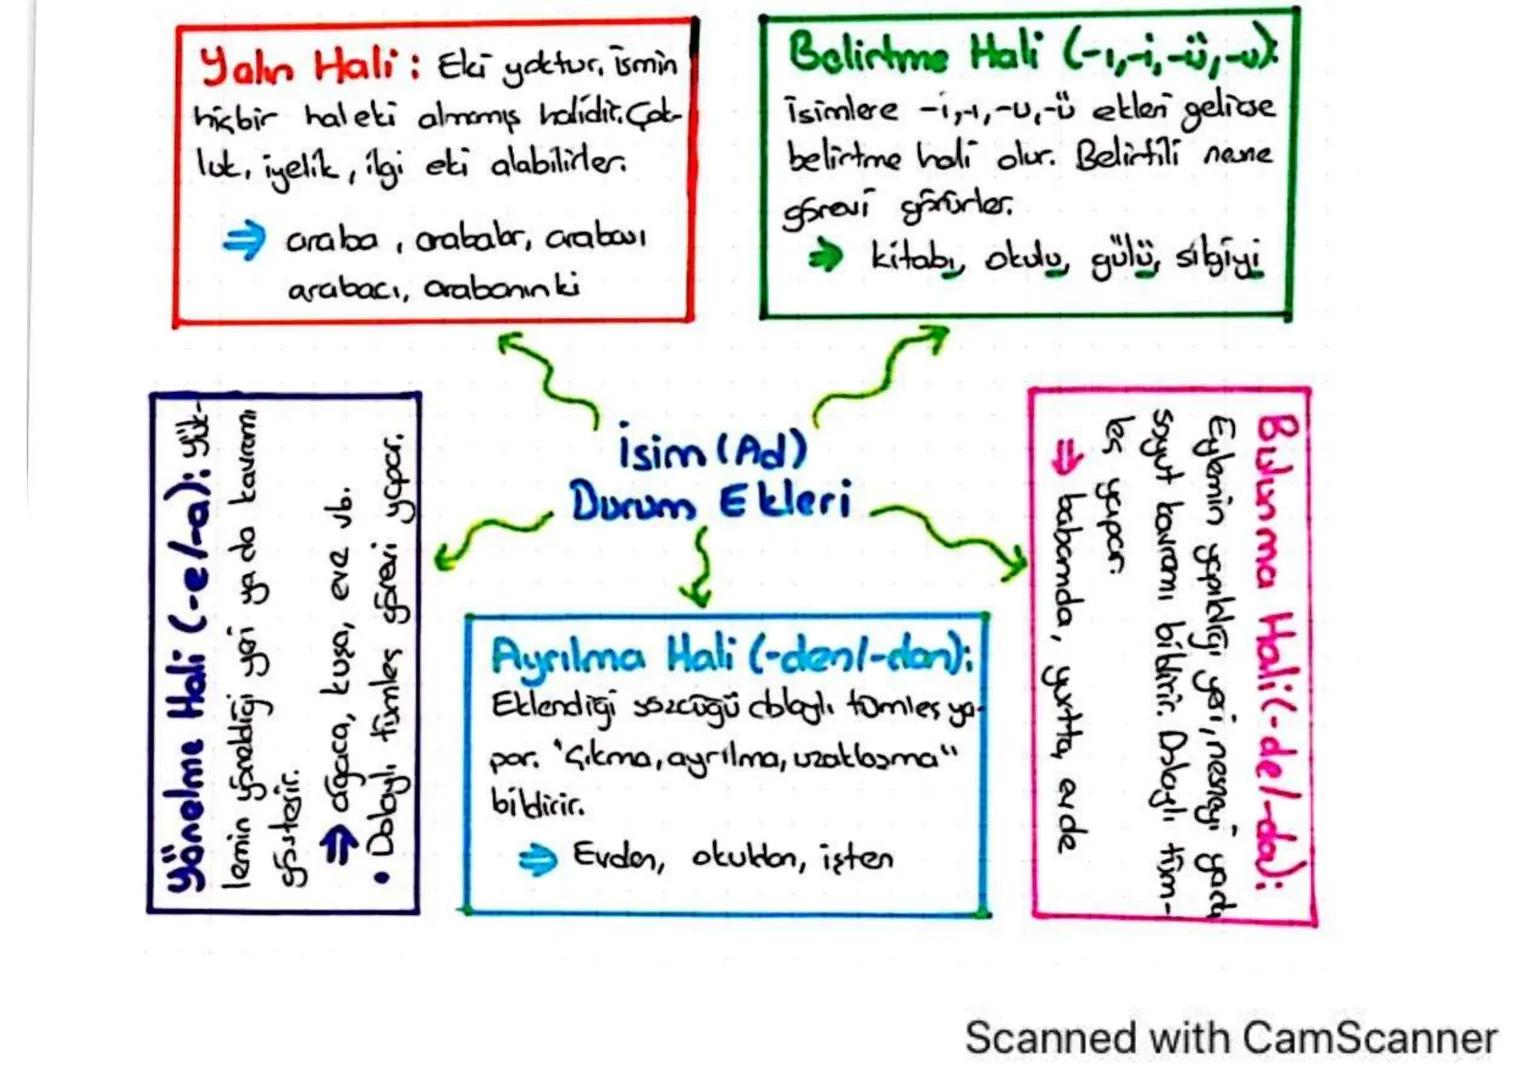 Yalın Hali: Eki yoktur, ismin
hiçbir hal eki almamış halidir. Çok-
luk, iyelik, ilgi eki alabilirler.
⇒ araba, arabalar, arabası
arabacı, arabanınki
Belirtme Hali (-ı,-i,-ü,-u):
isimlere -i,-ı,-u,-ü ekleri gelirse
belirtme hali olur. Belirtili nesne
görevi görürler.
⇒ kitabı, okulu, gülü, silgiyi
İsim (Ad)
Durum Ekleri
Yönelme Hali (-e/-a): yük-
lemin yöneldiği yeri ya da kavramı
gösterir.
⇒ ağaca, kuşa, eve vb.
• Dolaylı tümleç görevi yapar.
Ayrılma Hali (-den/-dan):
Eklendiği sözcüğü dolaylı tümleç ya-
par. "Çıkma, ayrılma, uzaklaşma"
bildirir.
⇒ Evden, okuldan, işten
Bulunma Hali (-de/-da):
Eylemin yapıldığı yeri, nesneyi yada
soyut kavramı bildirir. Dolaylı tüm-
leç yapar.
⇒ babamda, yurtta, evde
Scanned with CamScanner